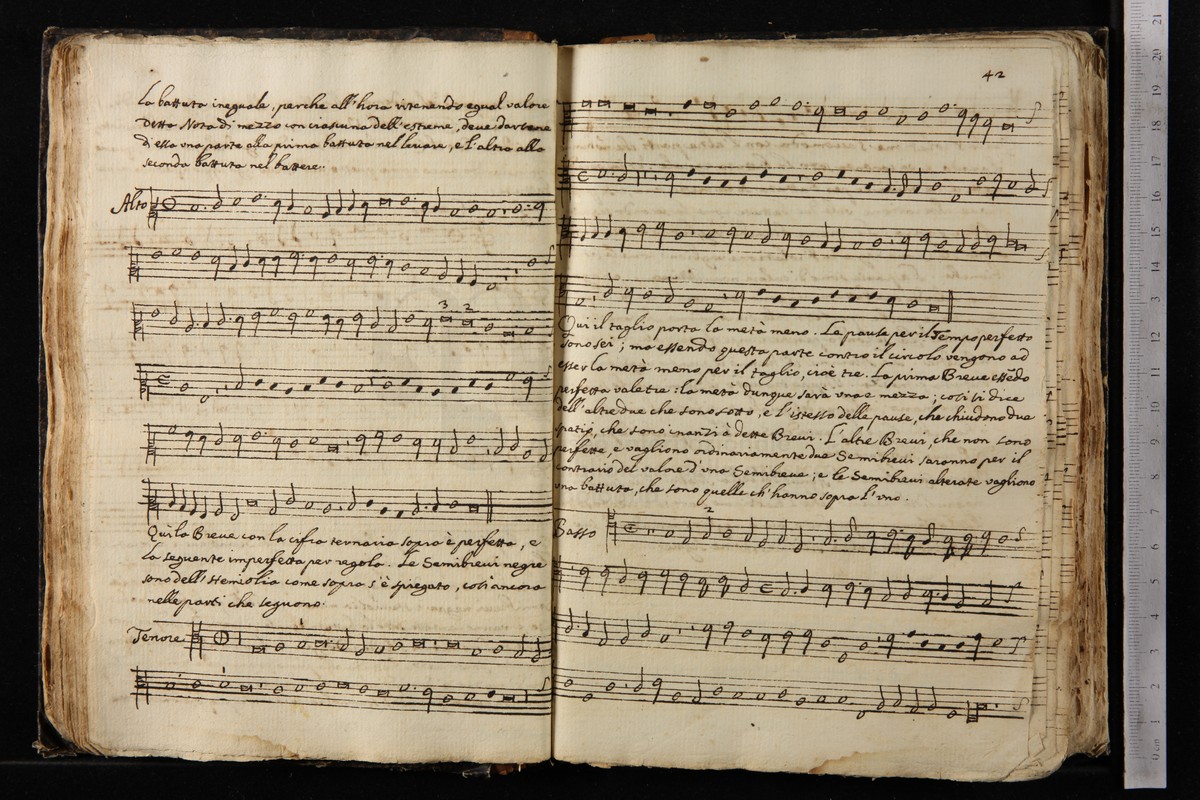 la battuta ineguale, perche all'hora ritenendo egual valore
detta Nota di mezzo con ciascuna dell'estreme, deue darsene
di essa vna parte alla prima battuta nel leuare, e l'altra alla
seconda battuta nel battere.
Alto
3 2
Qui la Breue con la cifra ternaria sopra è perfetta, e
la seguente imperfetta per regola. Le Semibreui negre
sono dell'Hemiolia come sopra s'è spiegato, così ancora
nelle parti che seguono.
Tenore
42
Qui il taglio porta la metà meno. La pausa per il Tempo perfetto
sono sei; ma essendo questa parte contro il circolo vengono ad
esser la metà meno per il taglio, cioè tre. La prima Breue essēdo
perfetta vale tre: la metà dunque sarà vna e mezza; così si dice
dell'altre due che sono sotto, e l'istesso delle pause, che chiudono due
spatij, che sono inanzi à dette Breui. L'altre Breui, che non sono
perfette, e vagliono ordinariamente due Semibreui saranno per il
contrario del valore d'vna Semibreue; e le Semibreui alterate vagliono
vna battuta, che sono quelle ch'hanno sopra l'vno.
Basso
2